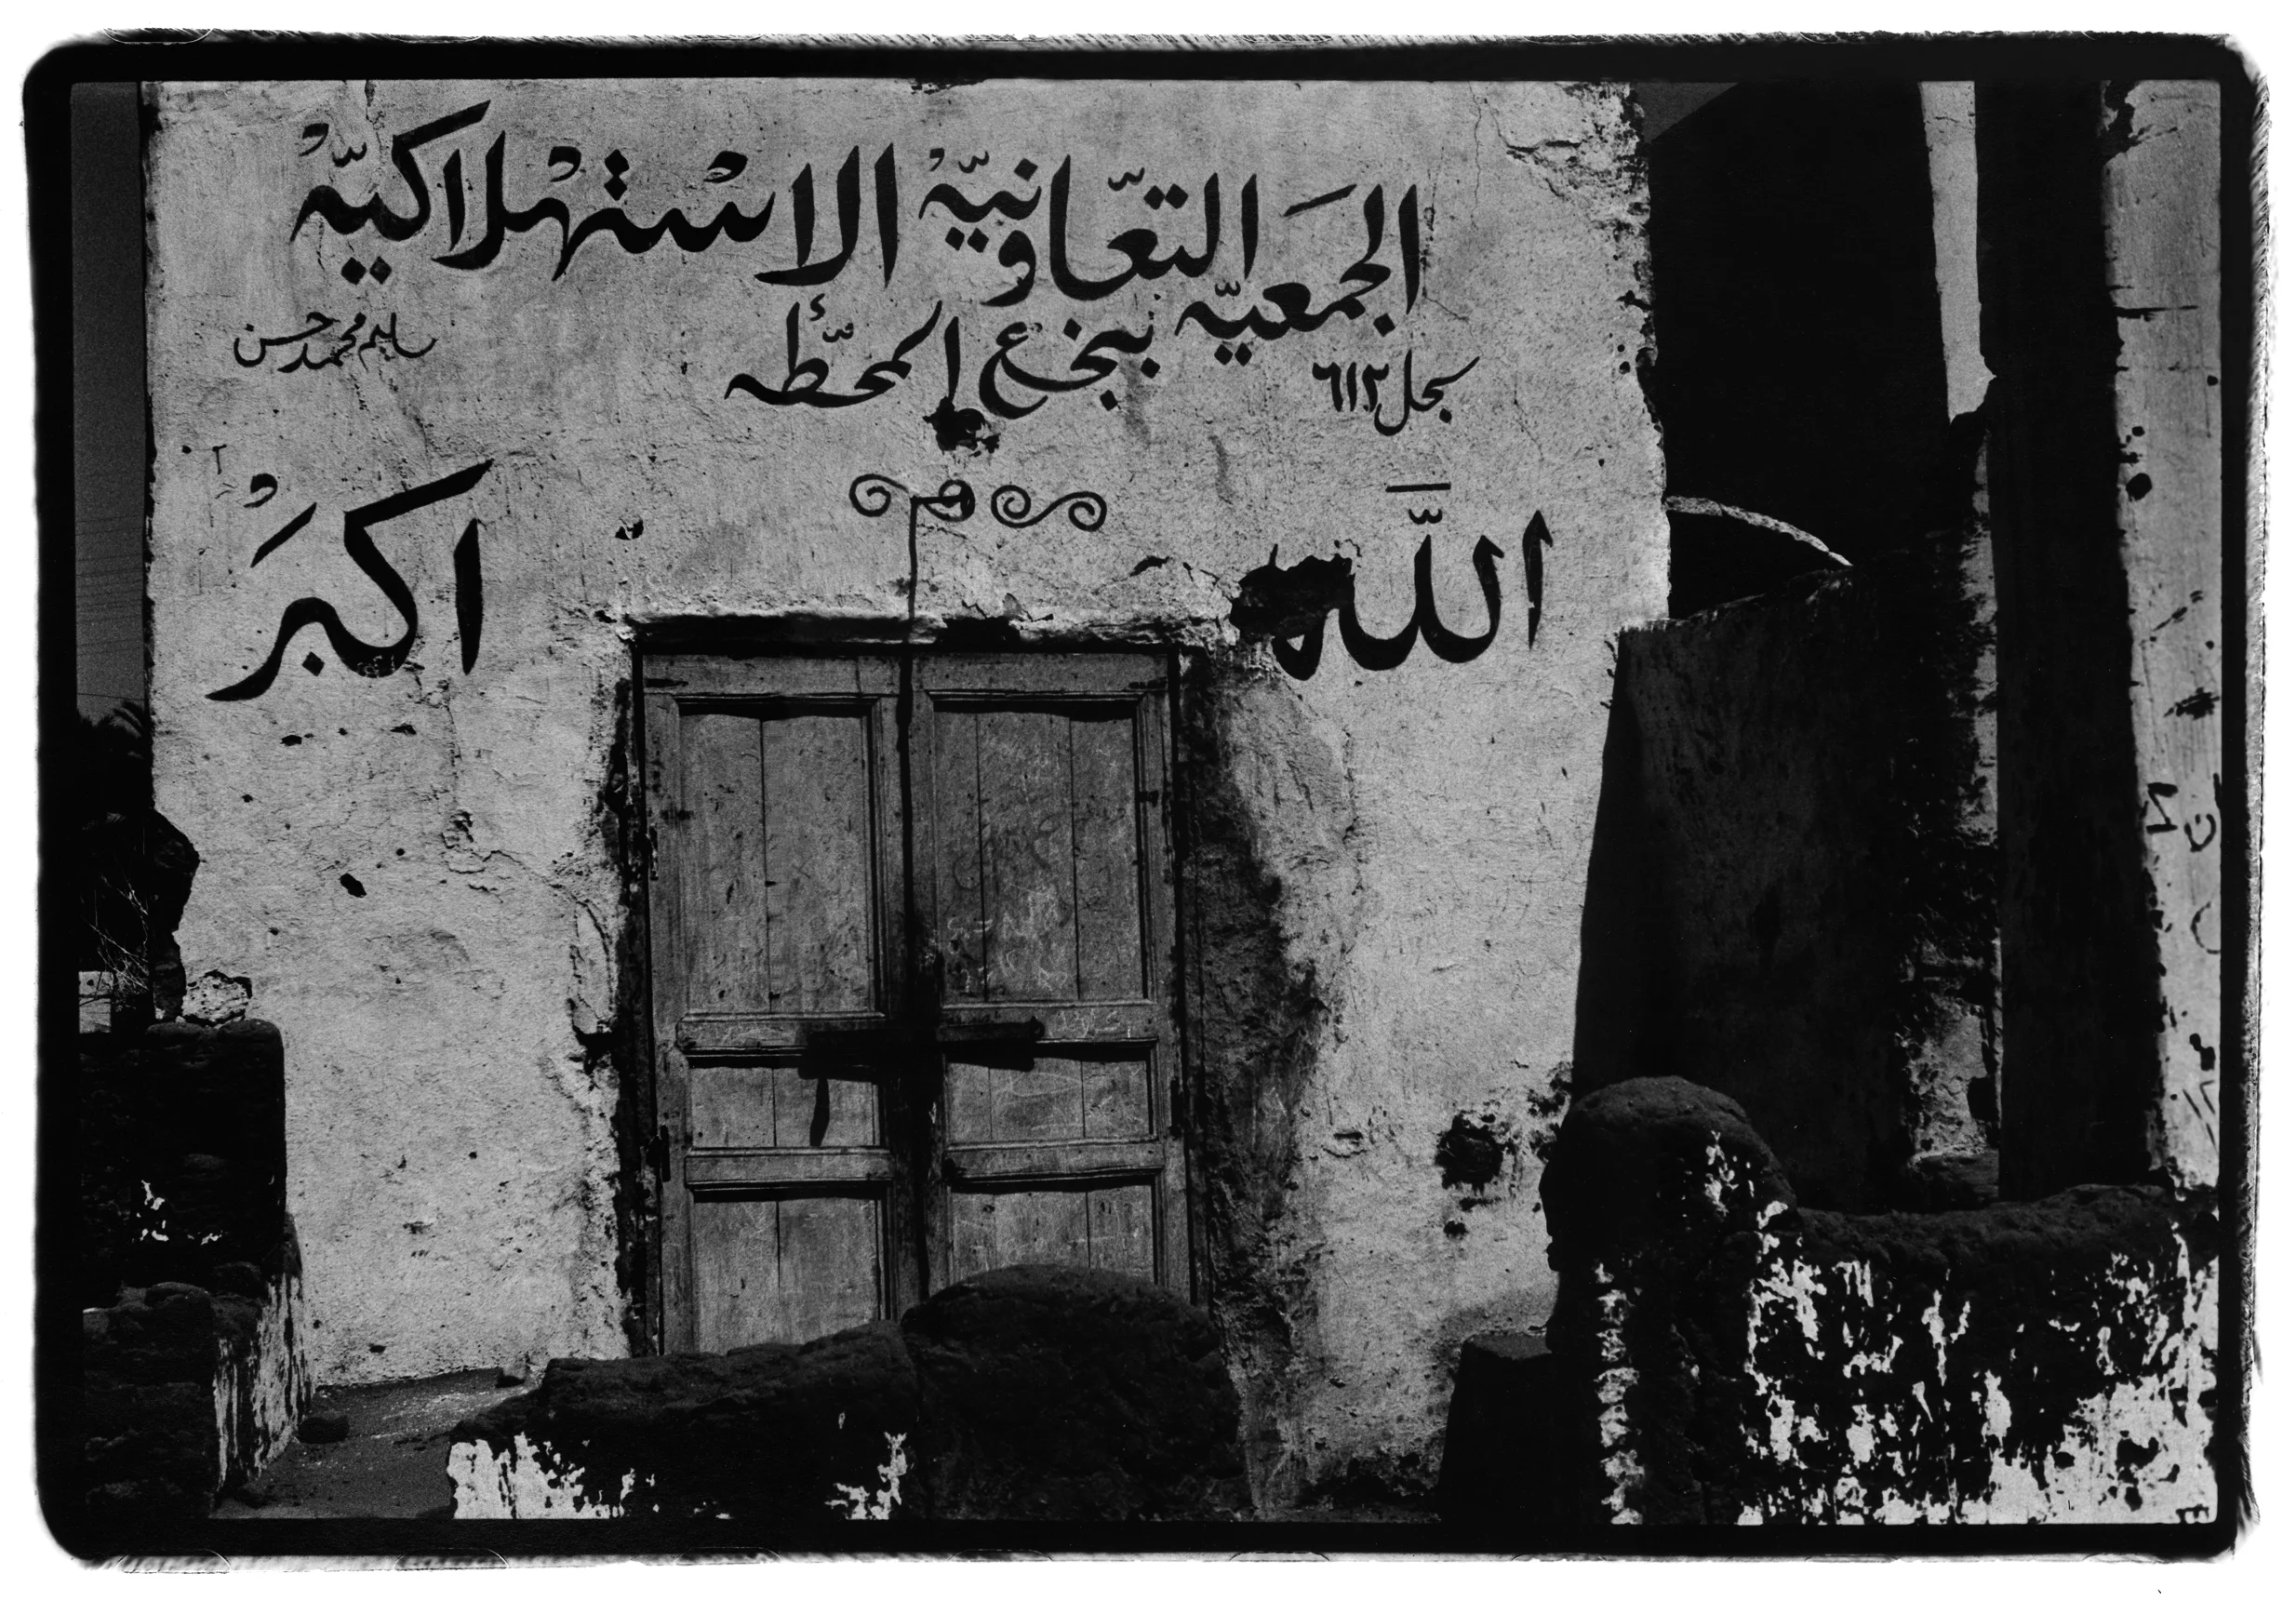 الجمعيّه التعّاونيّهْ الاسْتهْلاكيّهْ
بنجع المحطّه
سجل ٦١٢
سليم محمد حسن
اللّه اكبَرْ